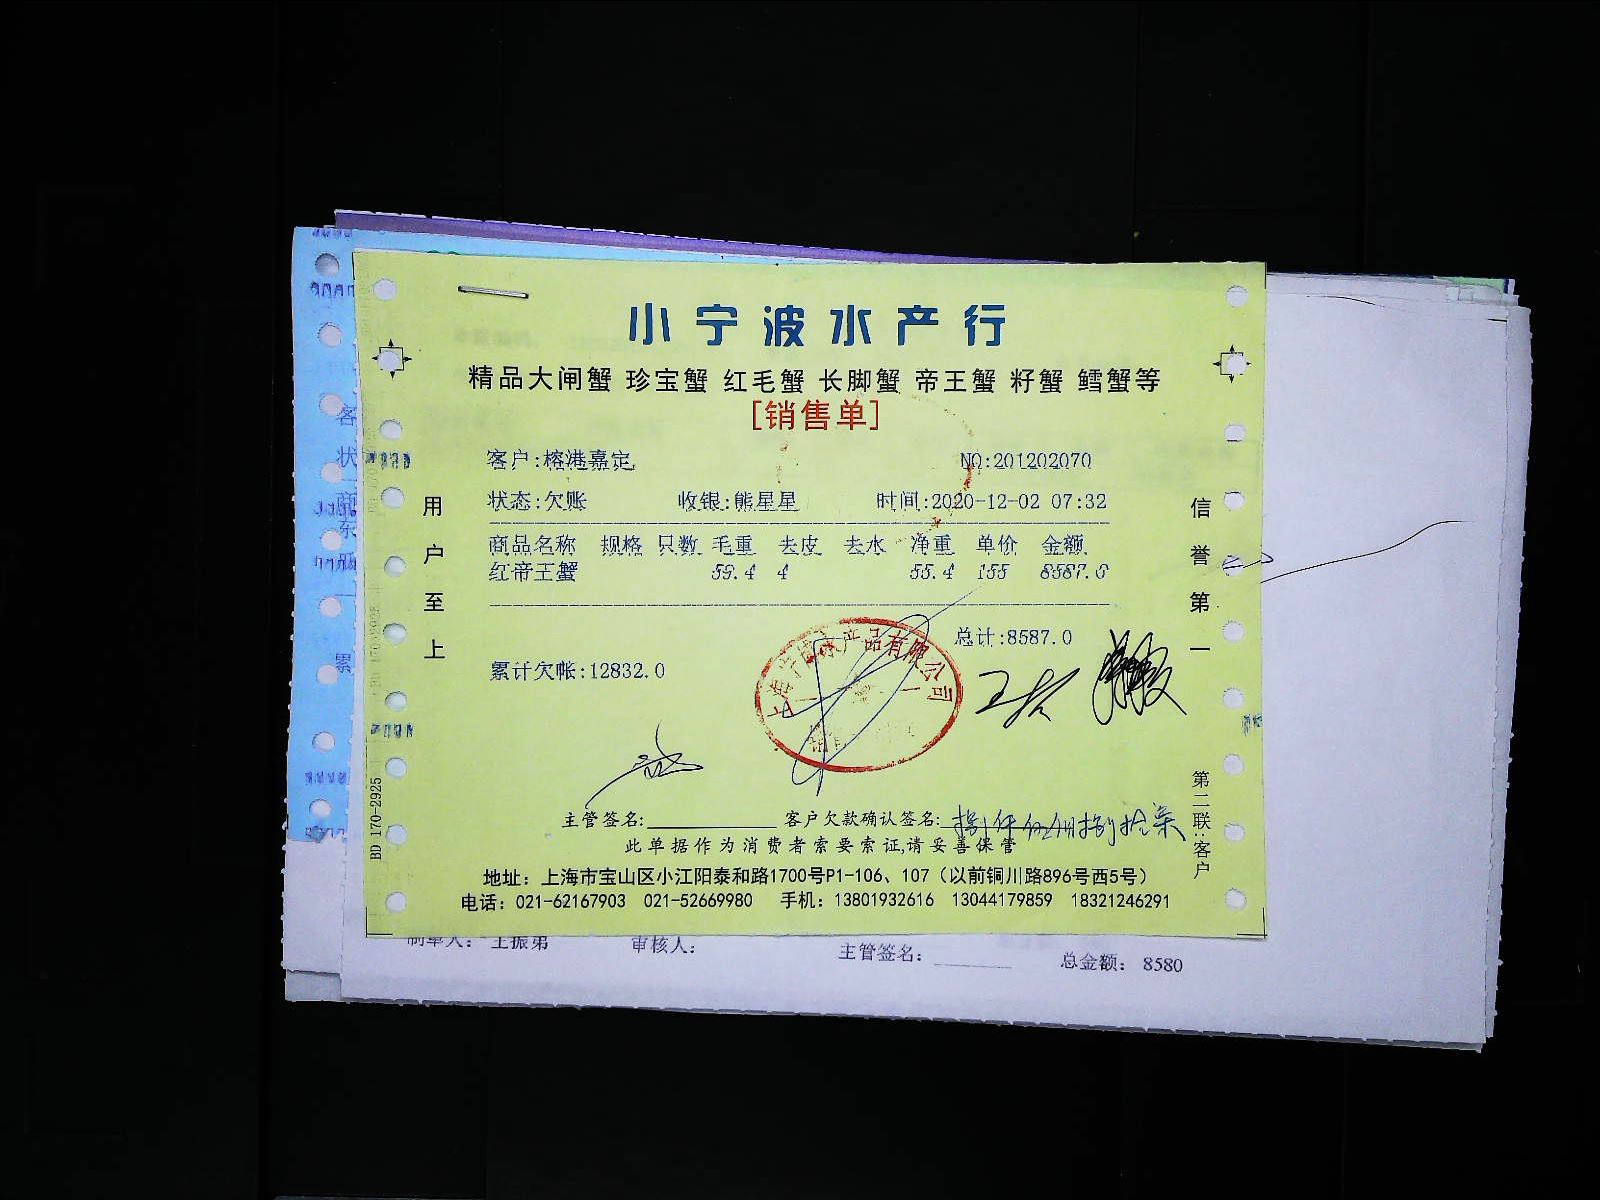 小宁波水产行
精品大闸蟹 珍宝蟹 红毛蟹 长脚蟹 帝王蟹 籽蟹 鳕蟹等
[销售单]
客户:榕港嘉定 NO:201202070
状态:欠账 收银:熊星星 时间:2020-12-02 07:32
商品名称 规格 只数 毛重 去皮 去水 净重 单价 金额
红帝王蟹 59.4 4 55.4 155 8587.0
总计:8587.0
累计欠帐:12832.0
用户至上
信誉第一
上海宁波水产品有限公司
主管签名: 客户欠款确认签名: 捌仟伍佰捌拾柒
此单据作为消费者索要索证,请妥善保管
地址：上海市宝山区小江阳泰和路1700号P1-106、107（以前铜川路896号西5号）
电话：021-62167903 021-52669980 手机：13801932616 13044179859 18321246291
第二联:客户
BD 170-2925
制单人： 王振弟 审核人: 主管签名: 总金额： 8580
客
状
商
累